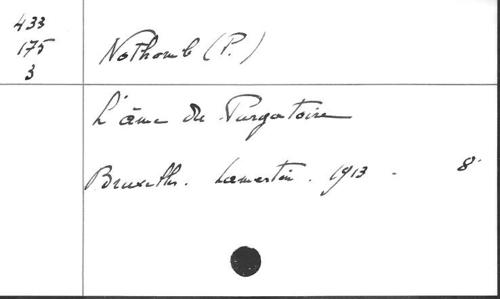 433
175
3
Nothomb (P.)
L'âme du Purgatoire
Bruxelles. Lamertin. 1913. 8°